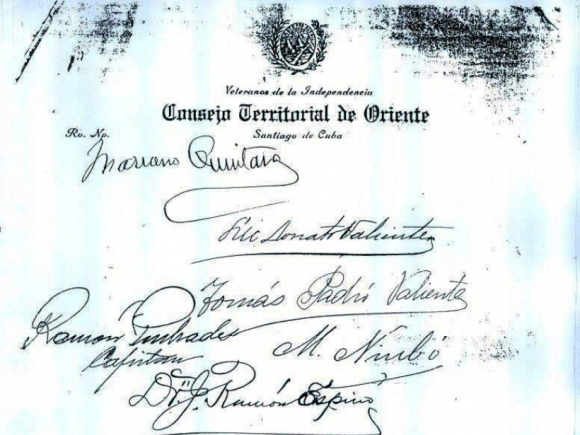 Veteranos de la Independencia
Consejo Territorial de Oriente
Santiago de Cuba
Ro. No.
Mariano Quintana
Donato Valiente
Tomás Padró Valiente
Ramón
Capitan
M. Nimbó
J. Ramón Espino